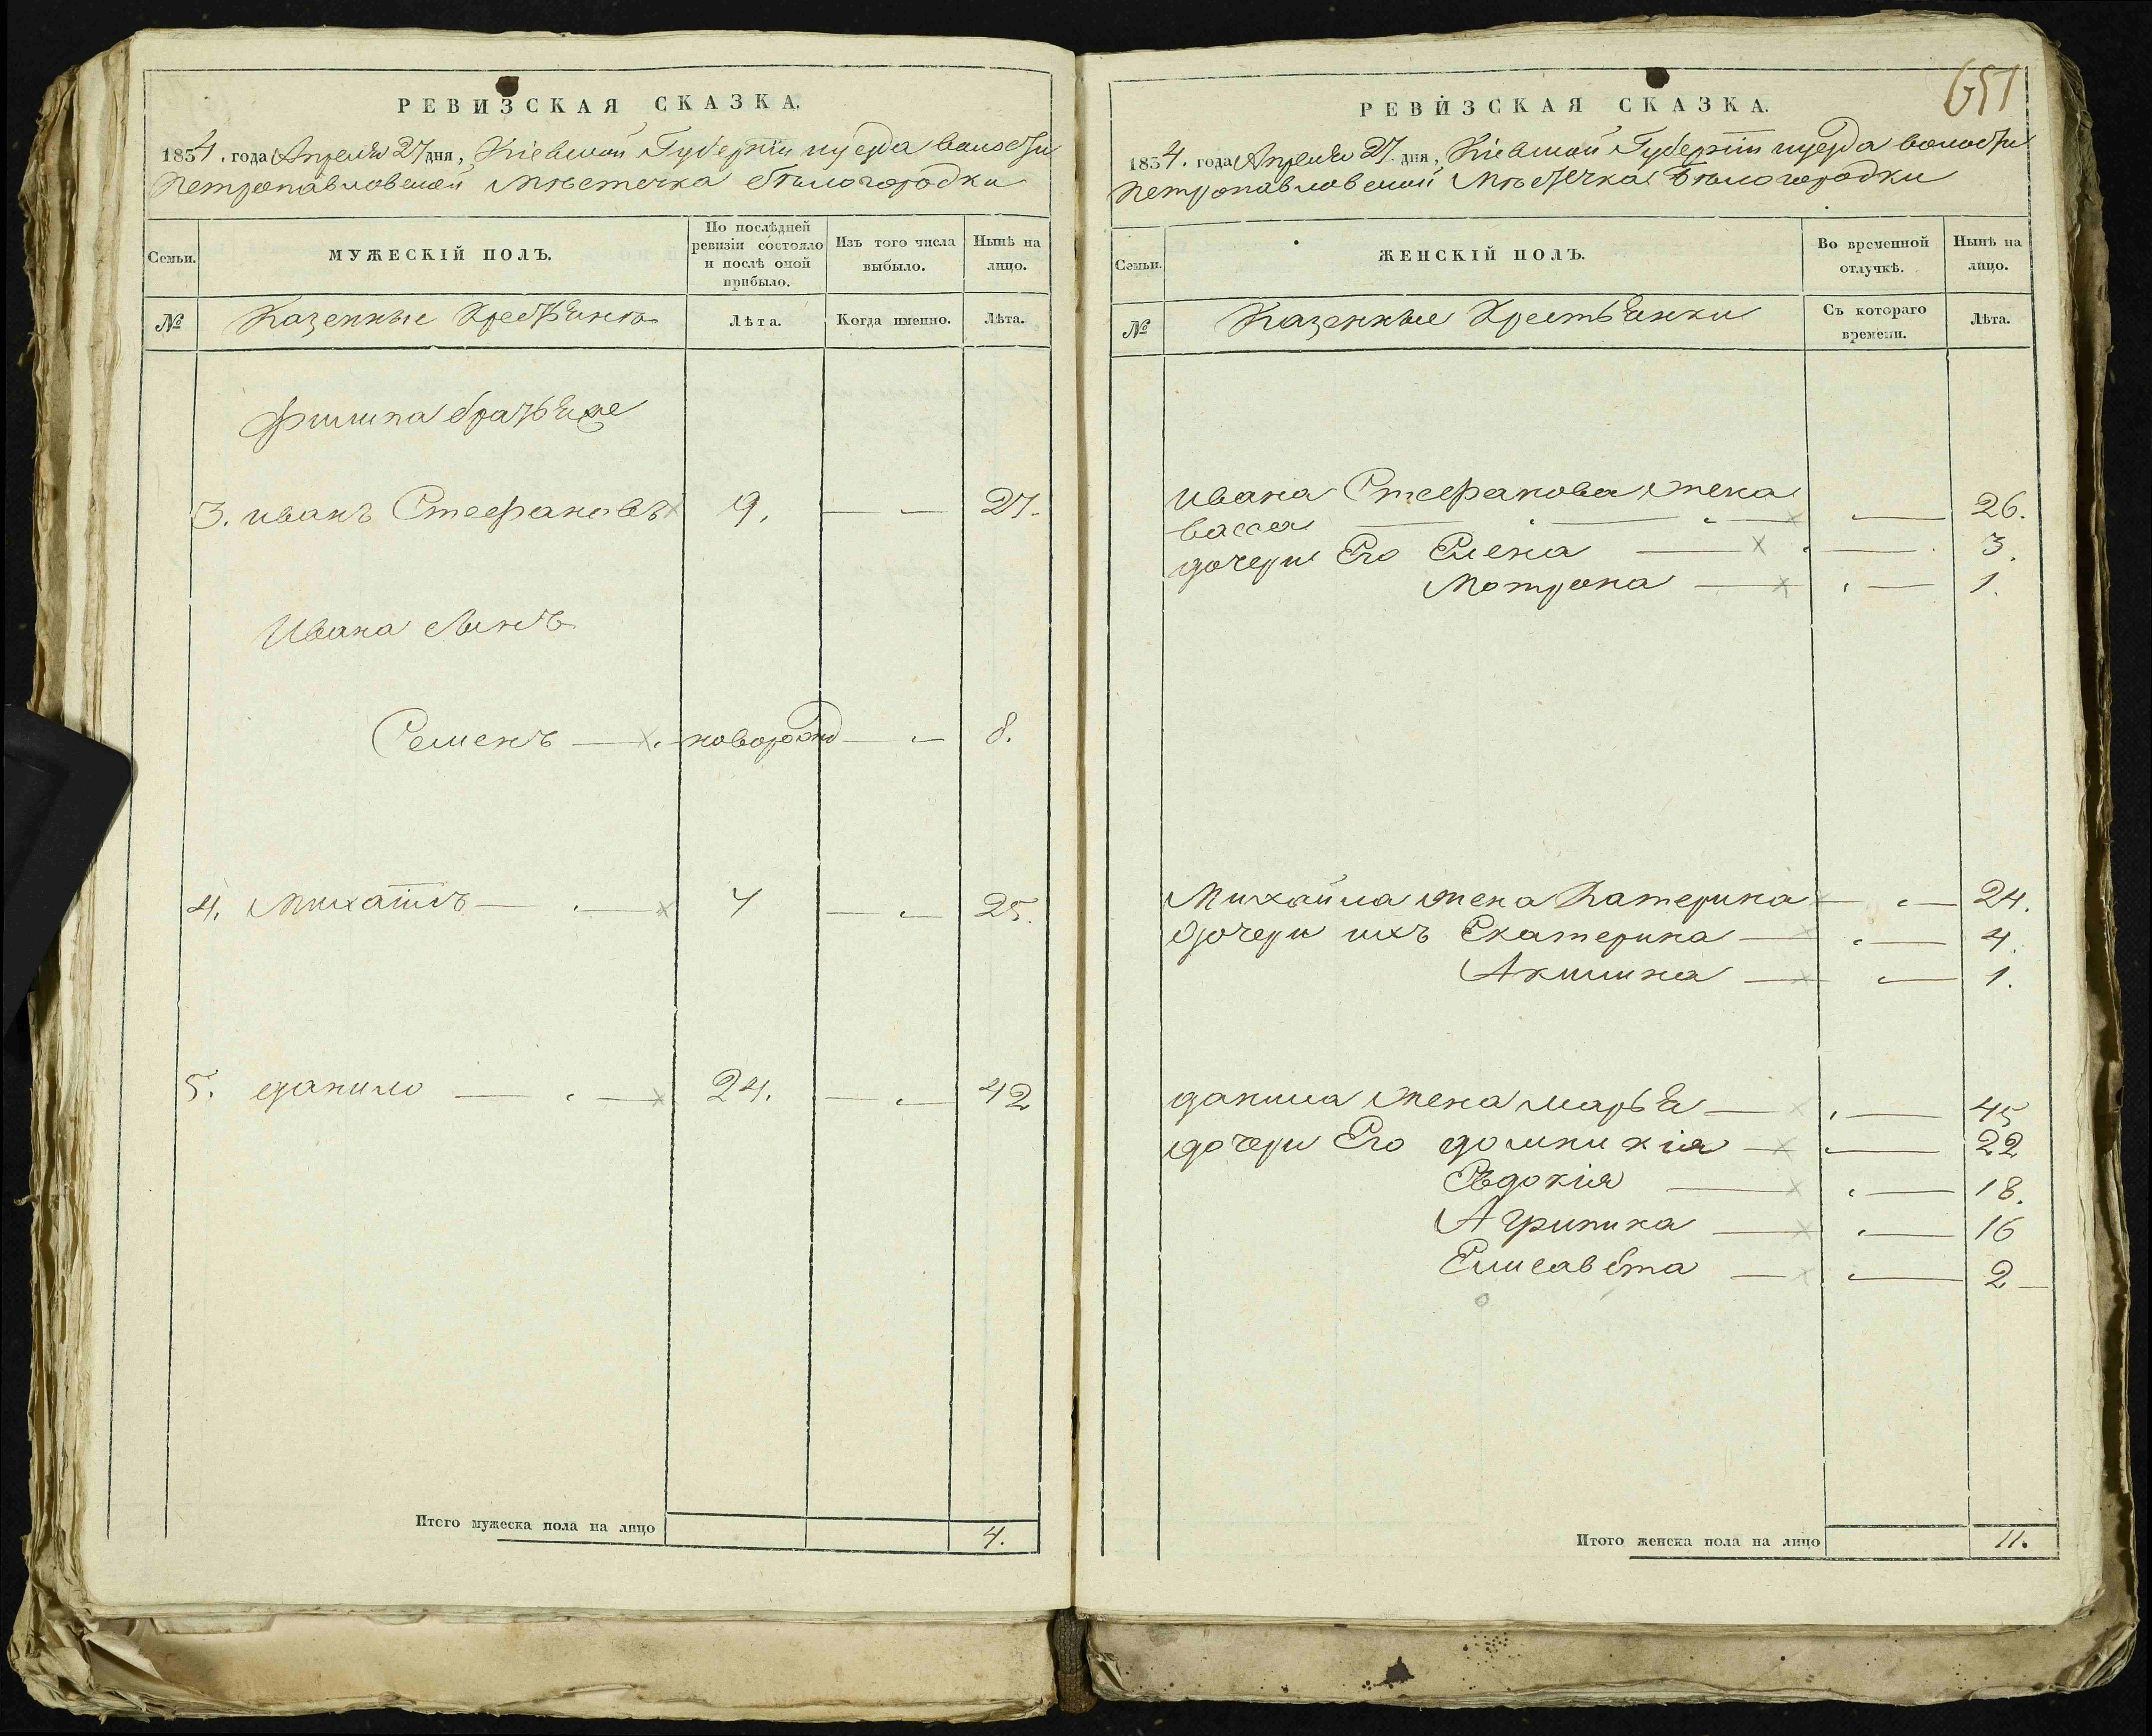 РЕВИЗСКАЯ СКАЗКА.
1854. года Апреля 27 дня, Кіевской Губерніи и уезда волости
Петропавловской Мѣстечка бѣлогородки
Семьи.
МУЖЕСКІЙ ПОЛЪ.
По послѣдней ревизіи состояло и послѣ оной прибыло.
Изъ того числа выбыло.
Нынѣ на лицо.
№
Казенные Крестьянѣ
Лѣта.
Когда именно.
Лѣта.
Филипа братья же
3. иванъ Стефановъ 9. — — 27.
Ивана сынъ
Семенъ — новорожд — — 8.
4. Михаилъ — — 7 — — 25.
5. данило — — 24. — — 42
Итого мужеска пола на лицо 4.
651
РЕВИЗСКАЯ СКАЗКА.
1854. года Апреля 27. дня, Кіевской Губерніи и уезда волости
Петропавловской Мѣстечка Бѣлогородки
Семьи.
ЖЕНСКІЙ ПОЛЪ.
Во временной отлучкѣ.
Нынѣ на лицо.
№
Казенные Крестьянки
Съ котораго времени.
Лѣта.
Ивана Стефанова жена
васса — — — — 26.
дочери Его Елена — — 3.
Мотрона — — 1.
Михайла жена Катерина — — 24.
дочери ихъ Екатерина — — 4.
Акилина — — 1.
данила жена марья — — 45
дочери Его домникія — — 22
Евдокія — — 18.
Агрипина — — 16
Елисавета — — 2
Итого женска пола на лицо 11.